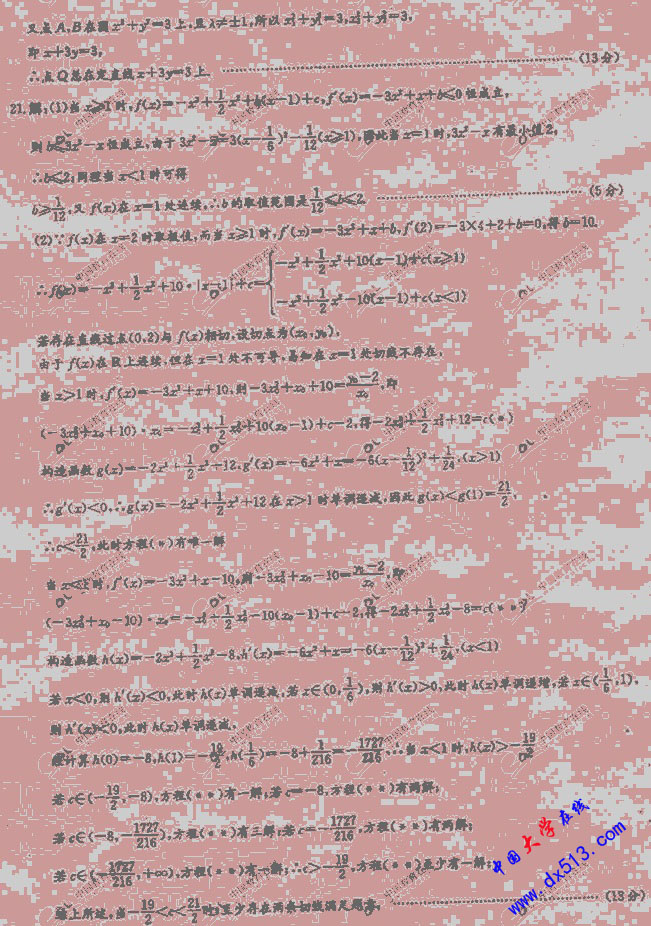 又点A、B在圆x²+y²=3上,且λ≠±1,所以x₁²+y₁²=3,x₂²+y₂²=3,
即x+3y=3,
∴点Q总在定直线x+3y=3上. (13分)
21.解:(1)当x≥1时,f(x)=-x³+1/2x²+b(x-1)+c,f′(x)=-3x²+x+b≤0恒成立,
则b≤3x²-x恒成立,由于3x²-x=3(x-1/6)²-1/12(x≥1),因此当x=1时,3x²-x有最小值2,
∴b≤2;同理当x<1时可得
b≥1/12,又f(x)在x=1处连续,∴b的取值范围是1/12≤b≤2. (5分)
(2)∵f(x)在x=2时取极值,而当x≥1时,f′(x)=-3x²+x+b,f′(2)=-3×4+2+b=0,得b=10.
∴f(x)=-x³+1/2x²+10·|x-1|+c={-x³+1/2x²+10(x-1)+c(x≥1)
-x³+1/2x²-10(x-1)+c(x<1)
若存在直线过点(0,2)与f(x)相切,设切点为(x₀,y₀),
由于f(x)在R上连续,但在x=1处不可导,易知在x=1处切线不存在,
当x>1时,f′(x)=-3x²+x+10,则-3x₀²+x₀+10=(y₀-2)/x₀,即
(-3x₀²+x₀+10)·x₀=-x₀³+1/2x₀²+10(x₀-1)+c-2,得-2x₀³+1/2x₀²+12=c(*)
构造函数g(x)=-2x³+1/2x²+12,g′(x)=-6x²+x=-6(x-1/12)²+1/24,(x>1)
∴g′(x)<0,∴g(x)=-2x³+1/2x²+12在x>1时单调递减,因此g(x)<g(1)=21/2,
∴c<21/2,此时方程(*)有唯一解
当x<1时,f′(x)=-3x²+x-10,则-3x₀²+x₀-10=(y₀-2)/x₀,即
(-3x₀²+x₀-10)·x₀=-x₀³+1/2x₀²-10(x₀-1)+c-2,得-2x₀³+1/2x₀²-8=c(**)
构造函数h(x)=-2x³+1/2x²-8,h′(x)=-6x²+x=-6(x-1/12)²+1/24,(x<1)
若x<0,则h′(x)<0,此时h(x)单调递减,若x∈(0,1/6),则h′(x)>0,此时h(x)单调递增,若x∈(1/6,1),
则h′(x)<0,此时h(x)单调递减,
经计算h(0)=-8,h(1)=-19/2,h(1/6)=-8+1/216=-1727/216,∴当x<1时,h(x)>-19/2
若c∈(-19/2,-8),方程(**)有一解;若c=-8,方程(**)有两解;
若c∈(-8,-1727/216),方程(**)有三解;若c=-1727/216,方程(**)有两解;
若c∈(-1727/216,+∞),方程(**)有一解;∴c>-19/2,方程(**)至少有一解;
综上所述,当-19/2<c<21/2时,至少存在两条切线满足题意. (13分)
中国大学在线
www.dx513.com